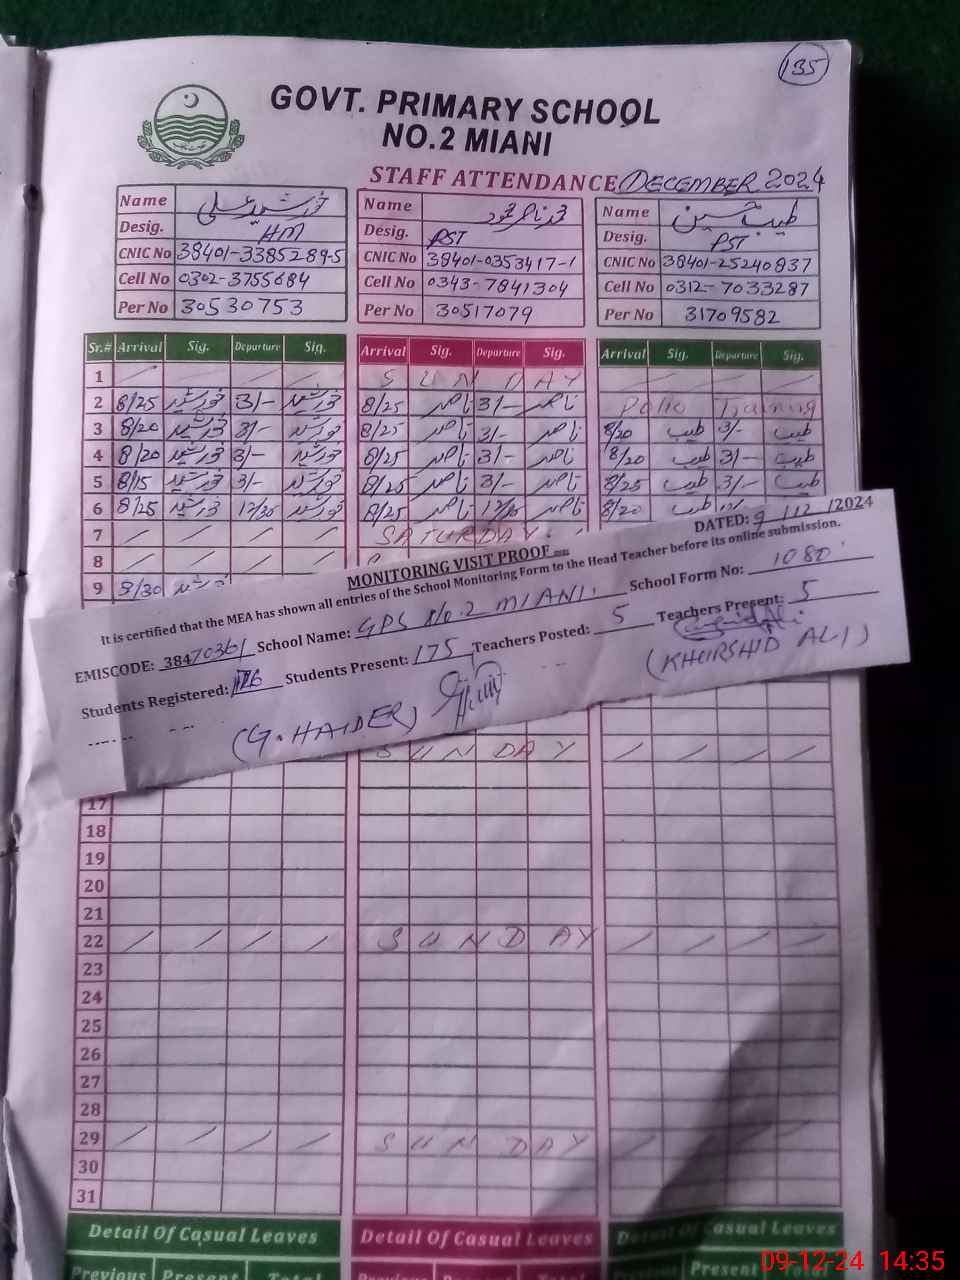 135
GOVT. PRIMARY SCHOOL
NO.2 MIANI
STAFF ATTENDANCE DECEMBER 2024
Name خورشید علی Name محمد ناصر محمود Name طیب حسین
Desig. HM Desig. PST Desig. PST
CNIC No 38401-3385289-5 CNIC No 38401-0353417-1 CNIC No 38401-25240837
Cell No 0302-3755684 Cell No 0343-7841304 Cell No 0312-7033287
Per No 30530753 Per No 30517079 Per No 31709582
Sr.# Arrival Sig. Departure Sig. Arrival Sig. Departure Sig. Arrival Sig. Departure Sig.
1 SUNDAY
2 8/25 خورشید 3/- خورشید 8/25 ناصر 3/- ناصر Polio Training
3 8/20 خورشید 3/- خورشید 8/25 ناصر 3/- ناصر 8/20 طیب 3/- طیب
4 8/20 خورشید 3/- خورشید 8/25 ناصر 3/- ناصر 8/20 طیب 3/- طیب
5 8/15 خورشید 3/- خورشید 8/25 ناصر 3/- ناصر 8/25 طیب 3/- طیب
6 8/25 خورشید 12/30 خورشید 8/25 ناصر 12/30 ناصر 8/20 طیب
7 SATURDAY
8
9 8/30
MONITORING VISIT PROOF DATED: 9/12/2024
It is certified that the MEA has shown all entries of the School Monitoring Form to the Head Teacher before its online submission.
EMISCODE: 38470361 School Name: GPS No.2 MIANI. School Form No: 1080
Students Registered: 176 Students Present: 175 Teachers Posted: 5 Teachers Present: 5
(G. HAIDER) (KHURSHID ALI)
SUNDAY
17
18
19
20
21
22 SUNDAY
23
24
25
26
27
28
29 SUNDAY
30
31
Detail Of Casual Leaves Detail Of Casual Leaves Detail Of Casual Leaves
Previous Present Total Previous Present Total Previous Present Total
09-12-24 14:35